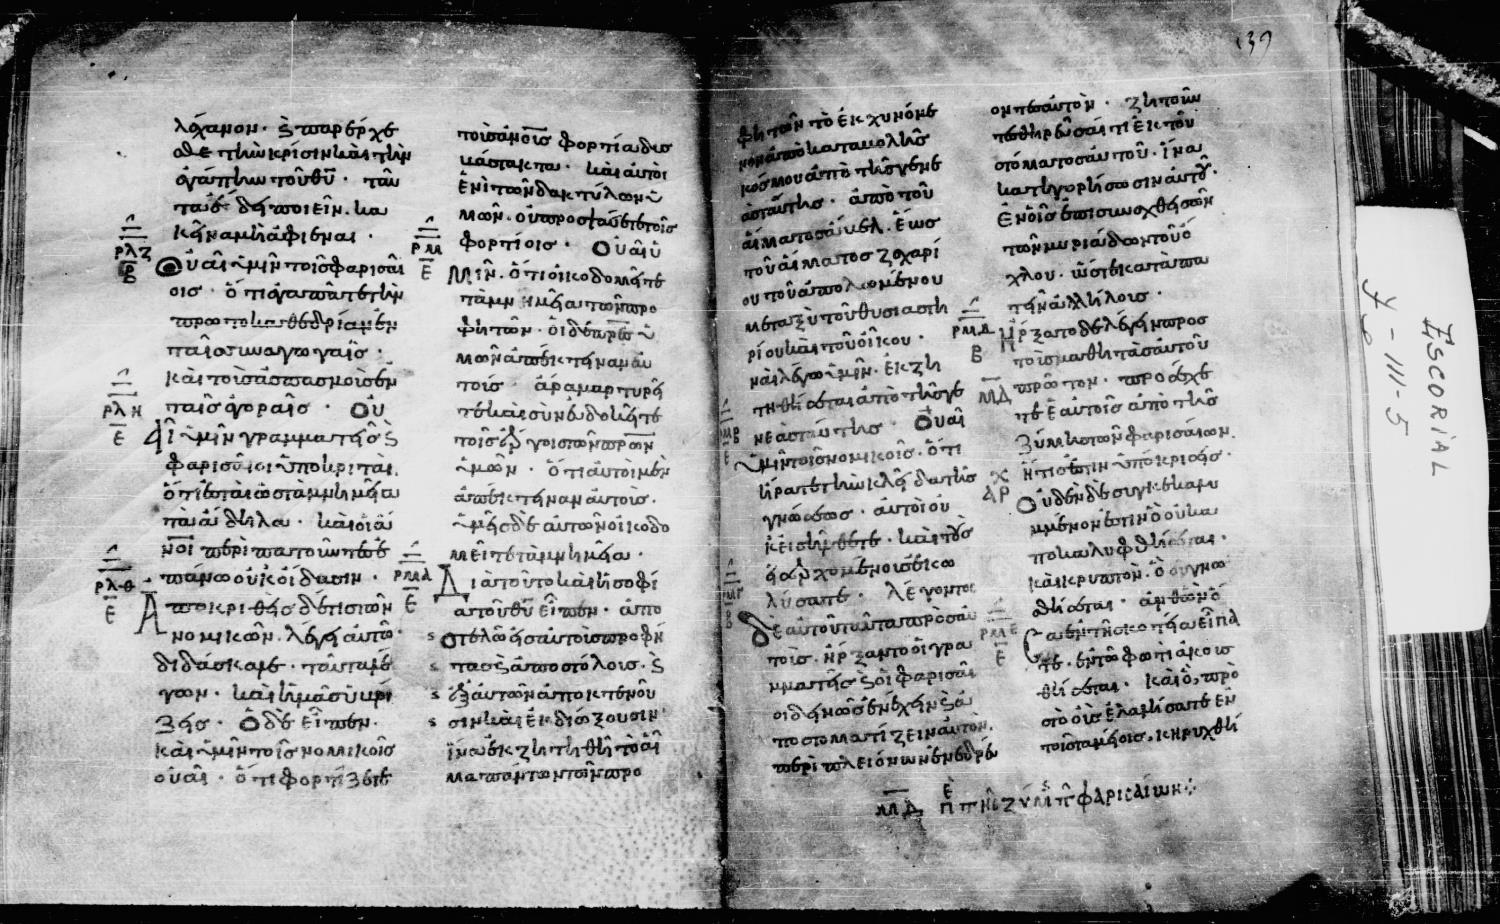 λάχανον· ϗ παρέρχε
σθε τὴν κρίσιν καὶ τὴν
ἀγάπην τοῦ θῦ· ταῦ
τα ἔδει ποιεῖν· κα
κεῖνα μὴ ἀφιέναι·
ρλζ
β
Οὐαὶ ὑμῖν τοῖς φαρισαί
οις· ὅτι ἀγαπᾶτε τὴν
πρωτοκαθεδρίαν ἐν
ταῖς συναγωγαῖς·
καὶ τοὺς ἀσπασμοὺς ἐν
ταῖς ἀγοραῖς· Οὐ
ρλη
ε
αὶ ὑμῖν γραμματεῖς ϗ
φαρισαῖοι ὑποκριταὶ,
ὅτι ἐσταὶ ὡς τὰ μνημεῖα
τὰ ἄδηλα· καὶ οἱ ἄ
νοι περιπατοῦντες ἐ
πάνω οὐκ οἴδασιν·
ρλθ
ε
Ἀποκριθεὶς δέ τις τῶν
νομικῶν· λέγει αὐτῶ·
διδάσκαλε· ταῦτα λέ
γων· καὶ ἡμᾶς ὑβρί
ζεις· Ὁ δὲ εἶπεν·
καὶ ὑμῖν τοῖς νομικοῖς
οὐαὶ· ὅτι φορτίζετε
τοὺς ἀνοὺς φορτία δυσ
βάστακτα· καὶ αὐτοὶ
ἑνὶ τῶν δακτύλων ὑ
μῶν· οὐ προσψαύετε τοῖς
φορτίοις· Οὐαὶ ὑ
ρμ
ε
μῖν· ὅτι οἰκοδομεῖτε
τὰ μνημεῖα τῶν προ
φητῶν· οἱ δὲ πρες ὑ
μῶν ἀπέκτειναν αὐ
τούς· ἄρα μαρτυρεῖ
τε καὶ συνευδοκεῖτε
τοῖς ἔργοις τῶν πρων
ὑμῶν· ὅτι αὐτοὶ μὲν
ἀπέκτειναν αὐτούς·
ὑμεῖς δὲ αὐτῶν οἰκοδο
μεῖτε τὰ μνημεῖα·
ρμα
ε
Διὰ τοῦτο καὶ ἡ σοφί
α τοῦ θῦ εἶπεν· ἀπο
στελῶ εἰς αὐτοὺς προφή
τας ϗ ἀποστόλους· ϗ
ἐξ αὐτῶν ἀποκτενοῦ
σιν καὶ ἐκδιώξουσιν
ἵνα ἐκζητηθῆ τὸ αἷ
μα πάντων τῶν προ
139
φητῶν τὸ ἐκχυνόμε
νον ἀπὸ καταβολῆς
κόσμου ἀπὸ τῆς γενε
ᾶς ταύτης· ἀπὸ τοῦ
αἵματος ἄβελ· ἕως
τοῦ αἵματος ζαχαρί
ου τοῦ ἀπολομένου
μεταξὺ τοῦ θυσιαστη
ρίου καὶ τοῦ οἴκου·
ναὶ λέγω ὑμῖν· ἐκζη
τηθήσεται ἀπὸ τῆς γε
νεᾶς ταύτης· Οὐαὶ
ρμβ
ε
ὑμῖν τοῖς νομικοῖς· ὅτι
ἤρατε τὴν κλεῖδα τῆς
γνώσεως· αὐτοὶ οὐ
κ εἰσήλθετε· καὶ τοὺς
εἰσερχομένους ἐκω
λύσατε· λέγοντος
ρμγ
β
δὲ αὐτοῦ ταῦτα πρὸς αὐ
τούς· ἤρξαντο οἱ γρα
μματεῖς ϗ οἱ φαρισαῖ
οι δεινῶς ἐνέχειν ϗ ἀ
ποστοματίζειν αὐτὸν·
περὶ πλειόνων ἐνεδρεύ
οντες αὐτὸν· ζητοῦν
τες θηρεῦσαί τι ἐκ τοῦ
στόματος αὐτοῦ· ἵνα
κατηγορήσωσιν αὐτοῦ·
Ἐν οἷς ἐπισυναχθεισῶν
τῶν μυριάδων τοῦ ὄ
χλου· ὥστε καταπα
τεῖν ἀλλήλους·
ρμδ
β
Ἤρξατο δὲ λέγειν πρὸς
τοὺς μαθητὰς αὐτοῦ
ΜΔ
πρῶτον· προσέχε
τε ἑαυτοῖς ἀπὸ τῆς
ζύμης τῶν φαρισαίων.
ἥτις ἐστὶν ὑπόκρισις·
ΑΡΧ
Οὐδὲν δὲ συγκεκαλυ
μμένον ἐστὶν ὃ οὐκ ἀ
ποκαλυφθήσεται·
καὶ κρυπτὸν· ὃ οὐ γνω
σθήσεται· ἀνθ' ὧν ὅ
ρμε
ε
σα ἐν τῆ σκοτεία εἴπα
τε· ἐν τῶ φωτὶ ἀκουσ
θήσεται· καὶ ὃ πρὸ
ς τὸ οὖς ἐλαλήσατε ἐν
τοῖς ταμείοις· κηρυχθή
ΜΔ περὶ τῆς ζύμης τῶν φαρισαίων
ESCORIAL
Ψ-III-5